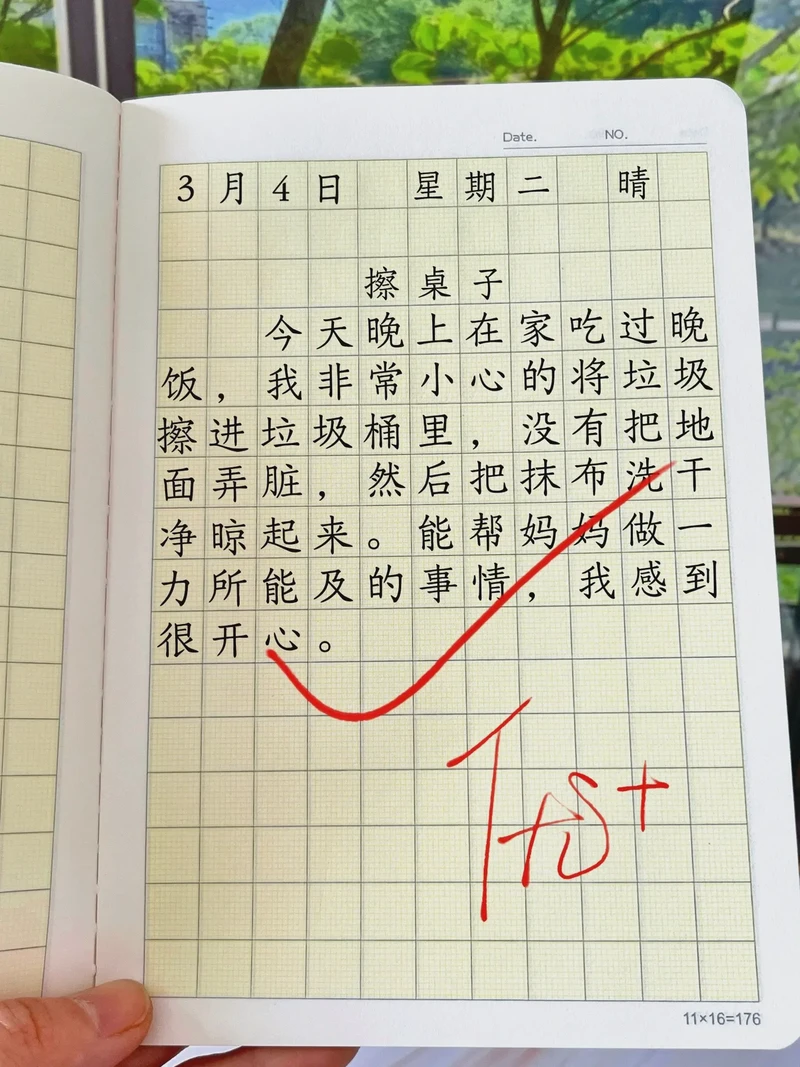 Date. NO.
3月4日 星期二 晴
擦桌子
今天晚上在家吃过晚
饭，我非常小心的将垃圾
擦进垃圾桶里，没有把地
面弄脏，然后把抹布洗干
净晾起来。能帮妈妈做一
力所能及的事情，我感到
很开心。
11×16=176